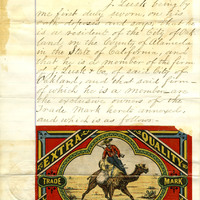 J. Lusk being by
me first duly sworn, on his
oath deposes and says that he
is a resident of the City of Oak
land, in the County of Alameda
in the State of California, and
that he is a member of the firm
of J. Lusk & Co. of said City of
Oakland, and that said firm
of which he is a member are
the exclusive owners of the
Trade Mark hereto annexed,
and which is as follows
EXTRA QUALITY
TRADE MARK